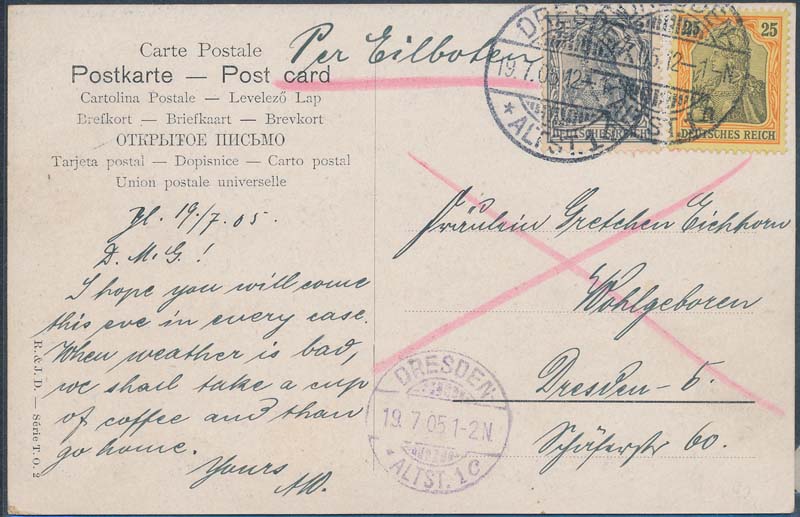 Carte Postale
Postkarte — Post card
Cartolina Postale — Levelező Lap
Brefkort — Briefkaart — Brevkort
ОТКРЫТОЕ ПИСЬМО
Tarjeta postal — Dopisnice — Carto postal
Union postale universelle
Per Eilboten
DRESDEN
19.7.05.12-1N.
* ALTST. 1
DEUTSCHES REICH
25
25
DEUTSCHES REICH
19/7.05.
D. M. G.!
I hope you will come
this eve in every case.
When weather is bad,
we shall take a cup
of coffee and than
go home.
Yours
Fräulein Gretchen Eichhorn
Wohlgeboren
Dresden - 5.
Schäferstr 60.
DRESDEN
19.7.05 1-2N.
* ALTST. 1c
R. & J. D. — Série T. O. 2